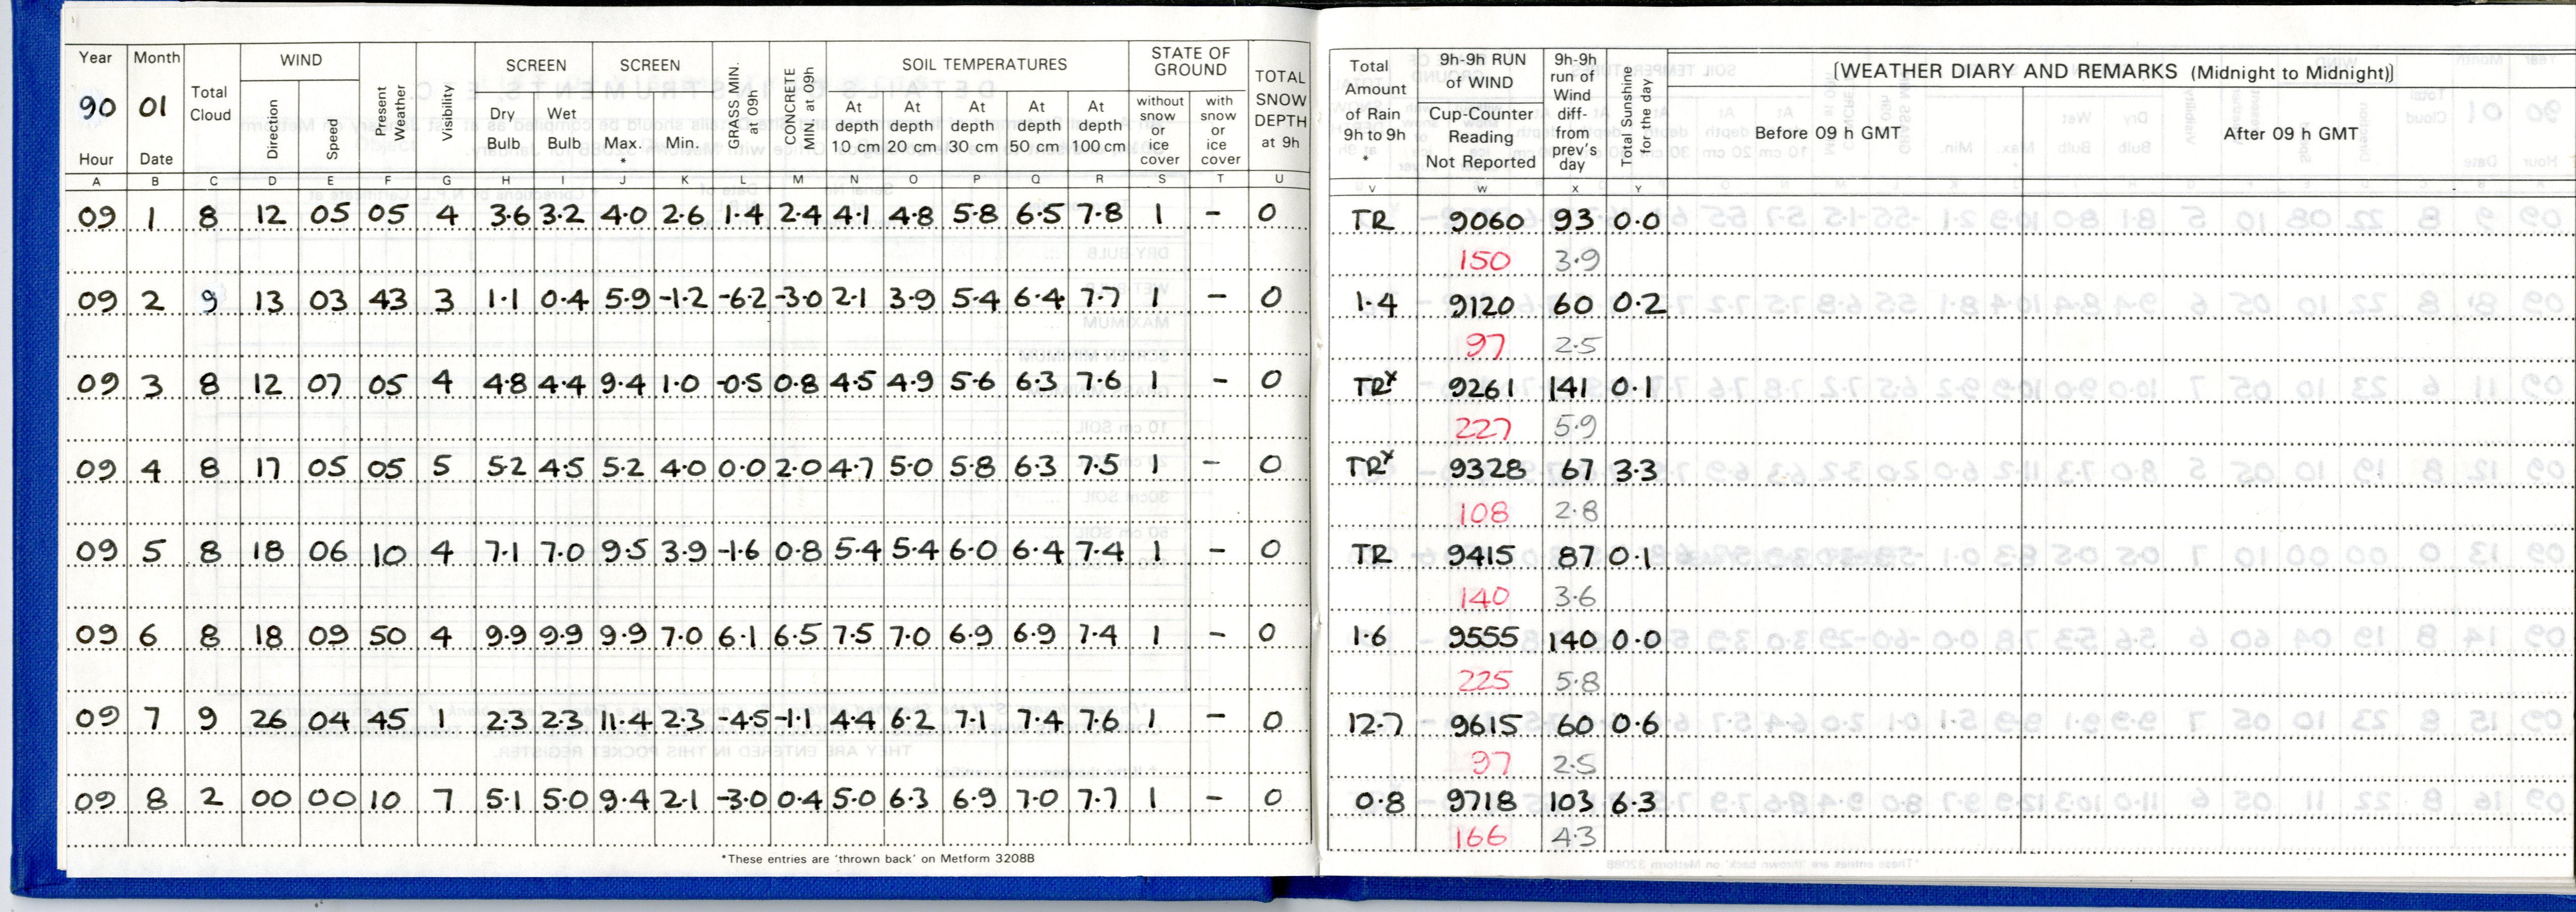 Year Month Total Cloud WIND Present Weather Visibility SCREEN SCREEN GRASS MIN. at 09h CONCRETE MIN. at 09h SOIL TEMPERATURES STATE OF GROUND TOTAL SNOW DEPTH at 9h Total Amount of Rain 9h to 9h * 9h-9h RUN of WIND 9h-9h run of Wind diff- from prev's day Total Sunshine for the day [WEATHER DIARY AND REMARKS (Midnight to Midnight)]
90 01 Direction Speed Dry Bulb Wet Bulb Max. * Min. At depth 10 cm At depth 20 cm At depth 30 cm At depth 50 cm At depth 100 cm without snow or ice cover * with snow or ice cover Cup-Counter Reading Not Reported Before 09 h GMT After 09 h GMT
Hour Date
A B C D E F G H I J K L M N O P Q R S T U V W X Y
09 1 8 12 05 05 4 3.6 3.2 4.0 2.6 1.4 2.4 4.1 4.8 5.8 6.5 7.8 1 - 0 TR 9060 93 0.0
150 3.9
09 2 9 13 03 43 3 1.1 0.4 5.9 -1.2 -6.2 -3.0 2.1 3.9 5.4 6.4 7.7 1 - 0 1.4 9120 60 0.2
97 2.5
09 3 8 12 07 05 4 4.8 4.4 9.4 1.0 -0.5 0.8 4.5 4.9 5.6 6.3 7.6 1 - 0 TRx 9261 141 0.1
227 5.9
09 4 8 17 05 05 5 5.2 4.5 5.2 4.0 0.0 2.0 4.7 5.0 5.8 6.3 7.5 1 - 0 TRx 9328 67 3.3
108 2.8
09 5 8 18 06 10 4 7.1 7.0 9.5 3.9 -1.6 0.8 5.4 5.4 6.0 6.4 7.4 1 - 0 TR 9415 87 0.1
140 3.6
09 6 8 18 09 50 4 9.9 9.9 9.9 7.0 6.1 6.5 7.5 7.0 6.9 6.9 7.4 1 - 0 1.6 9555 140 0.0
225 5.8
09 7 9 26 04 45 1 2.3 2.3 11.4 2.3 -4.5 -1.1 4.4 6.2 7.1 7.4 7.6 1 - 0 12.7 9615 60 0.6
97 2.5
09 8 2 00 00 10 7 5.1 5.0 9.4 2.1 -3.0 0.4 5.0 6.3 6.9 7.0 7.7 1 - 0 0.8 9718 103 6.3
166 4.3
*These entries are 'thrown back' on Metform 3208B